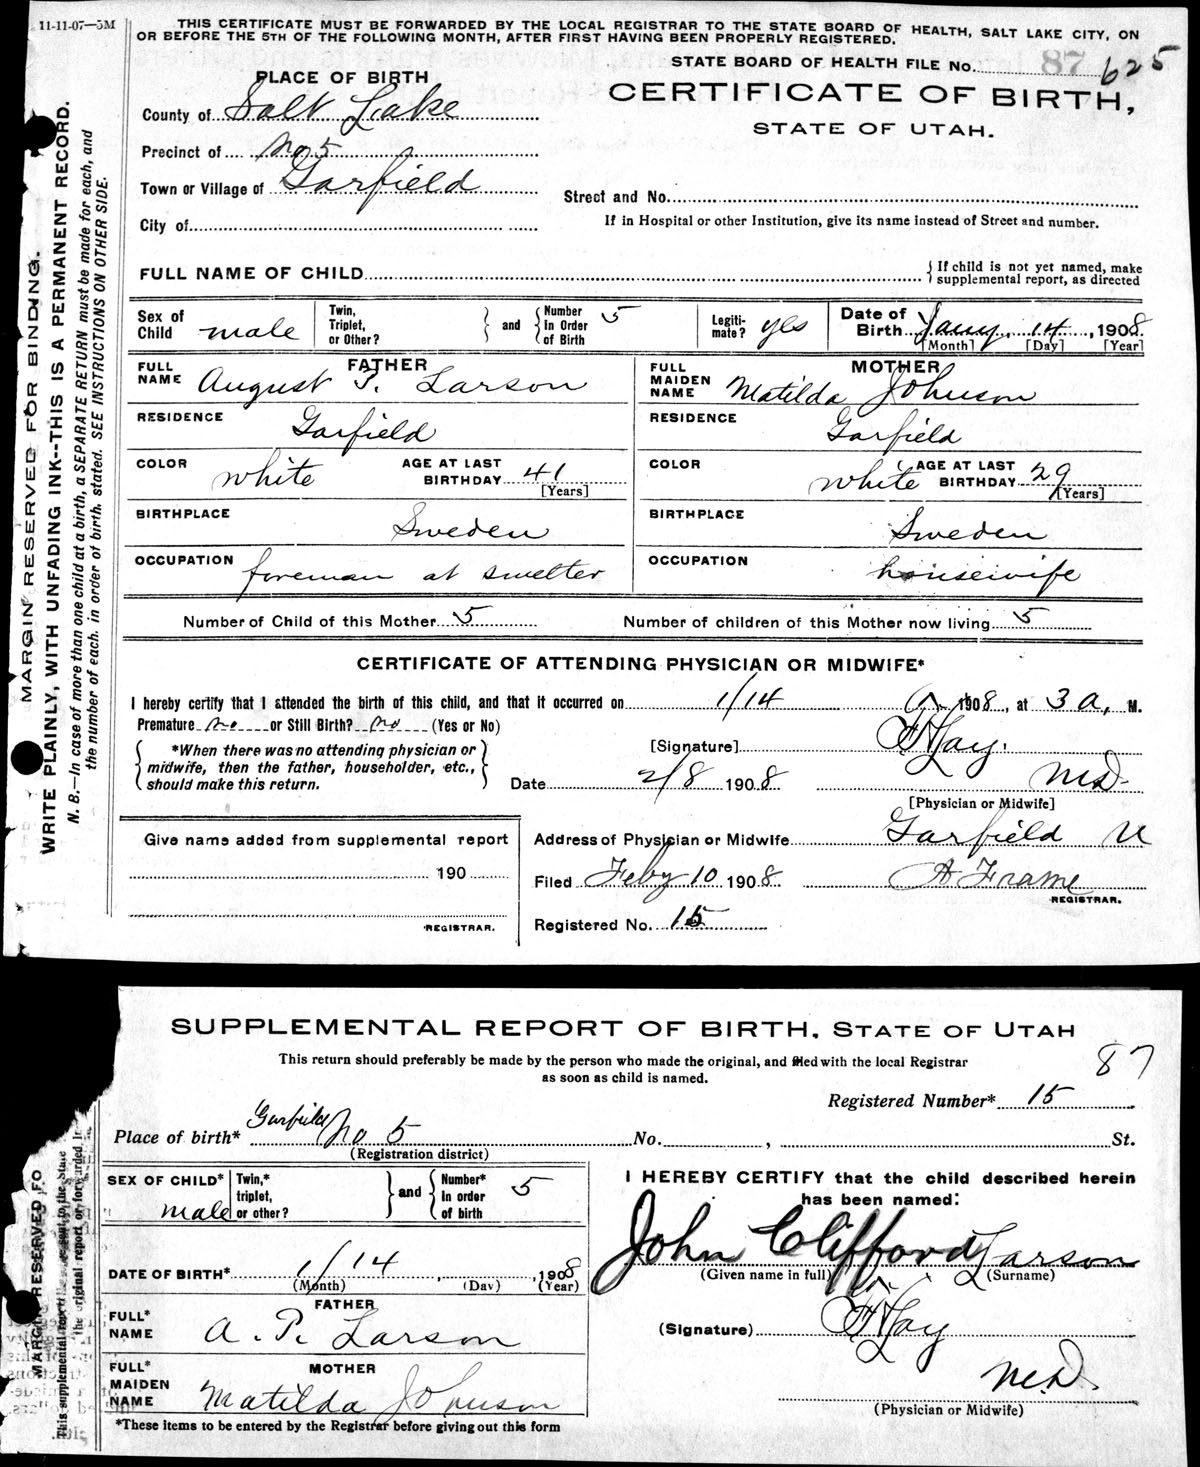 11-11-07—5M
THIS CERTIFICATE MUST BE FORWARDED BY THE LOCAL REGISTRAR TO THE STATE BOARD OF HEALTH, SALT LAKE CITY, ON
OR BEFORE THE 5TH OF THE FOLLOWING MONTH, AFTER FIRST HAVING BEEN PROPERLY REGISTERED.
STATE BOARD OF HEALTH FILE No. 87 625
PLACE OF BIRTH
CERTIFICATE OF BIRTH,
STATE OF UTAH.
County of Salt Lake
Precinct of No 5
Town or Village of Garfield
Street and No.
City of
If in Hospital or other Institution, give its name instead of Street and number.
FULL NAME OF CHILD
If child is not yet named, make
supplemental report, as directed
Sex of Child male
Twin, Triplet, or Other?
and
Number In Order of Birth 5
Legiti-mate? yes
Date of Birth Jany. 14, 1908.
[Month] [Day] [Year]
FATHER
FULL NAME August P. Larson
MOTHER
FULL MAIDEN NAME Matilda Johnson
RESIDENCE Garfield
RESIDENCE Garfield
COLOR white AGE AT LAST BIRTHDAY 41 [Years]
COLOR white AGE AT LAST BIRTHDAY 29 [Years]
BIRTHPLACE Sweden
BIRTHPLACE Sweden
OCCUPATION foreman at smelter
OCCUPATION housewife
Number of Child of this Mother 5
Number of children of this Mother now living 5
CERTIFICATE OF ATTENDING PHYSICIAN OR MIDWIFE*
I hereby certify that I attended the birth of this child, and that it occurred on 1/14 1908, at 3 a, M.
Premature no or Still Birth? no (Yes or No)
*When there was no attending physician or
midwife, then the father, householder, etc.,
should make this return.
[Signature]
Date 2/8 1908 M.D.
[Physician or Midwife]
Give name added from supplemental report
190
REGISTRAR.
Address of Physician or Midwife Garfield U
Filed Feby 10 1908 A Frame
REGISTRAR.
Registered No. 15
MARGIN RESERVED FOR BINDING.
WRITE PLAINLY, WITH UNFADING INK--THIS IS A PERMANENT RECORD.
N. B.—In case of more than one child at a birth, a SEPARATE RETURN must be made for each, and
the number of each, in order of birth, stated. SEE INSTRUCTIONS ON OTHER SIDE.
SUPPLEMENTAL REPORT OF BIRTH, STATE OF UTAH
This return should preferably be made by the person who made the original, and filed with the local Registrar
as soon as child is named.
87
Registered Number* 15
Place of birth* Garfield No 5 No. , St.
(Registration district)
SEX OF CHILD* male
Twin,* triplet, or other?
and
Number* In order of birth 5
I HEREBY CERTIFY that the child described herein
has been named:
John Clifford Larson
(Given name in full) (Surname)
DATE OF BIRTH* 1/14, 1908
(Month) (Day) (Year)
FATHER
FULL* NAME A. P. Larson
(Signature)
MOTHER
FULL* MAIDEN NAME Matilda Johnson
M.D.
(Physician or Midwife)
*These items to be entered by the Registrar before giving out this form
MARGIN RESERVED FO